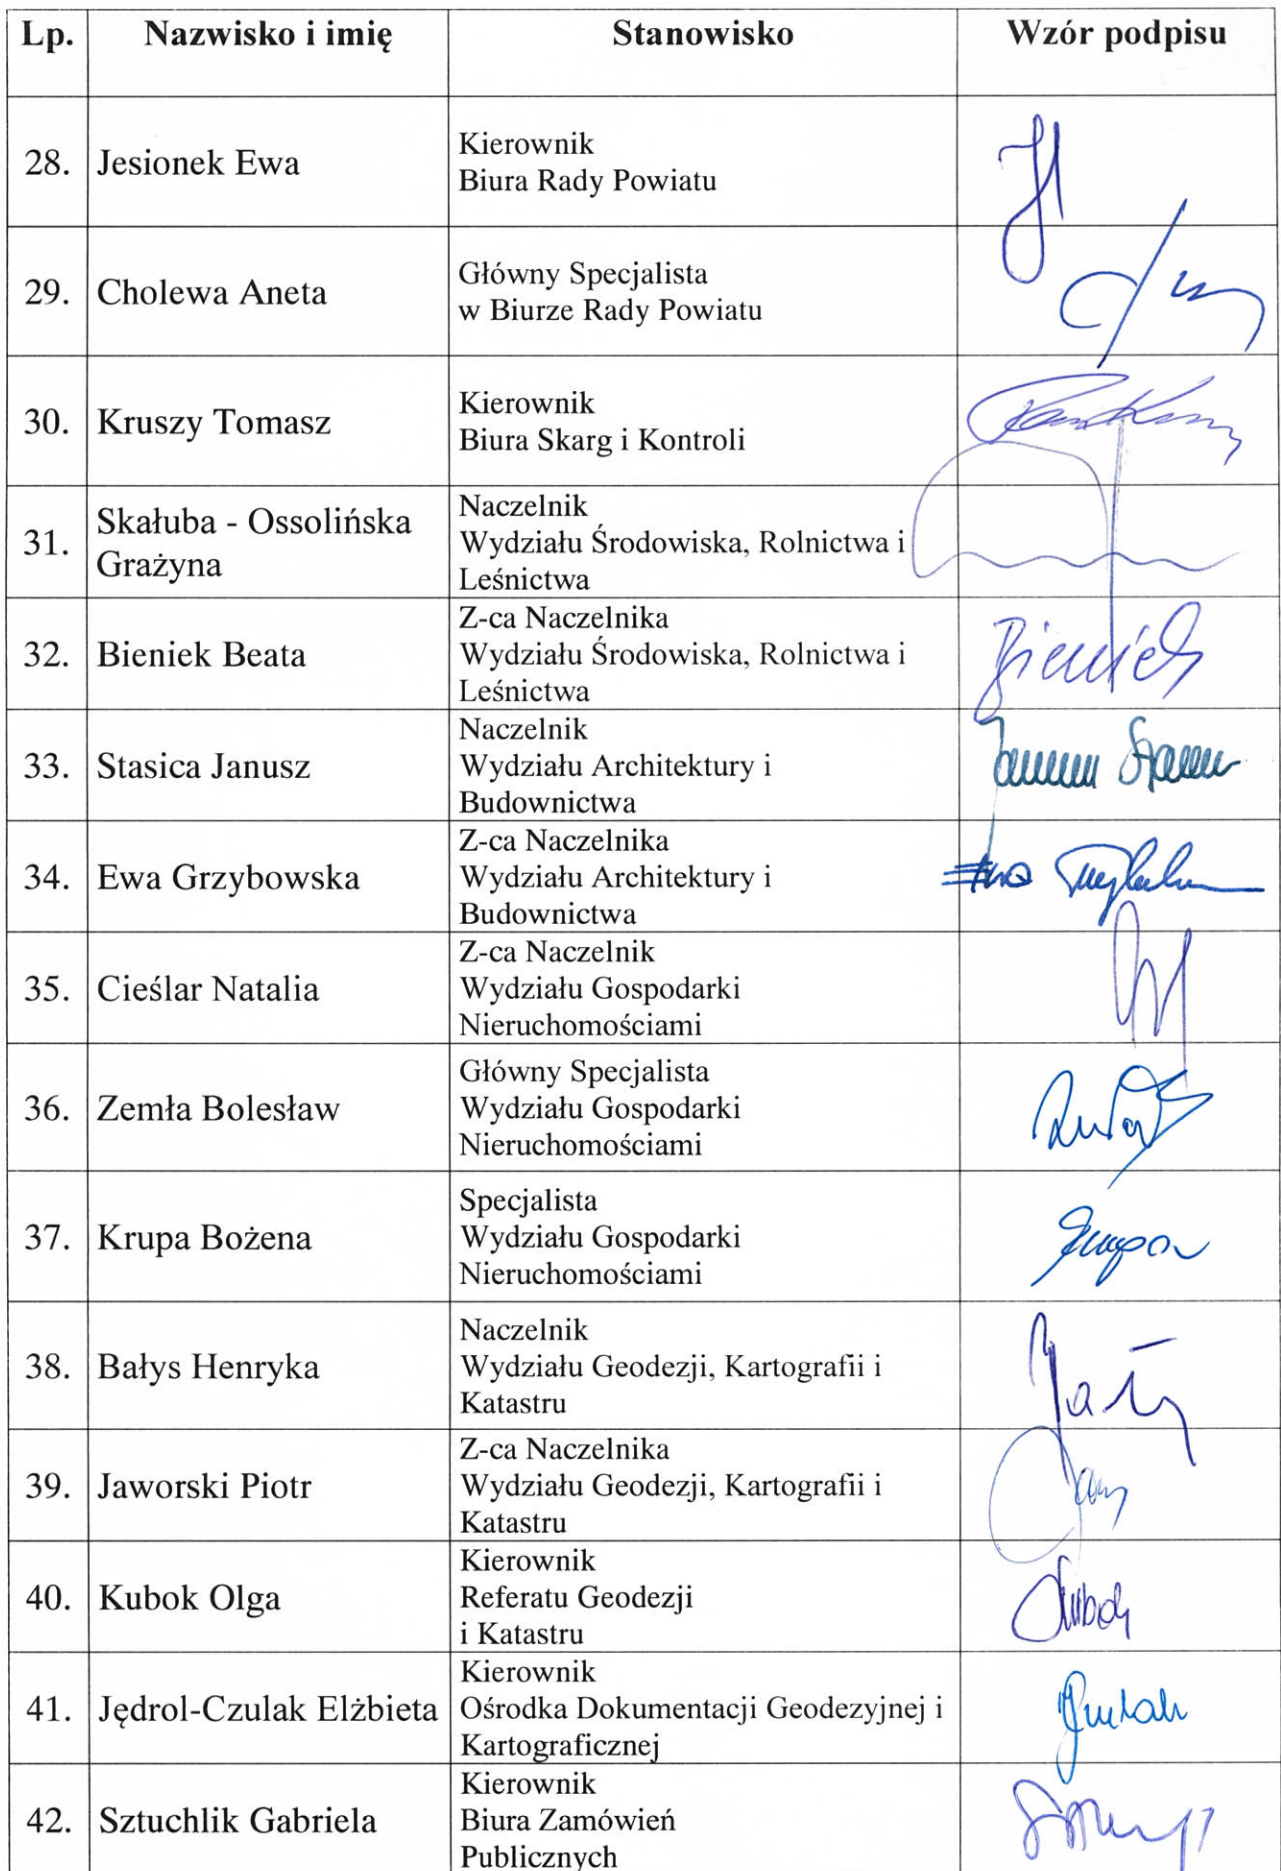 Lp. Nazwisko i imię Stanowisko Wzór podpisu
28. Jesionek Ewa
Kierownik
Biura Rady Powiatu
29. Cholewa Aneta
Główny Specjalista
w Biurze Rady Powiatu
30. Kruszy Tomasz
Kierownik
Biura Skarg i Kontroli
31.
Skałuba - Ossolińska
Grażyna
Naczelnik
Wydziału Środowiska, Rolnictwa i
Leśnictwa
32. Bieniek Beata
Z-ca Naczelnika
Wydziału Środowiska, Rolnictwa i
Leśnictwa
Bieniek
33. Stasica Janusz
Naczelnik
Wydziału Architektury i
Budownictwa
34. Ewa Grzybowska
Z-ca Naczelnika
Wydziału Architektury i
Budownictwa
Ewa
35. Cieślar Natalia
Z-ca Naczelnik
Wydziału Gospodarki
Nieruchomościami
36. Zemła Bolesław
Główny Specjalista
Wydziału Gospodarki
Nieruchomościami
37. Krupa Bożena
Specjalista
Wydziału Gospodarki
Nieruchomościami
38. Bałys Henryka
Naczelnik
Wydziału Geodezji, Kartografii i
Katastru
39. Jaworski Piotr
Z-ca Naczelnika
Wydziału Geodezji, Kartografii i
Katastru
40. Kubok Olga
Kierownik
Referatu Geodezji
i Katastru
Kubok
41. Jędrol-Czulak Elżbieta
Kierownik
Ośrodka Dokumentacji Geodezyjnej i
Kartograficznej
42. Sztuchlik Gabriela
Kierownik
Biura Zamówień
Publicznych